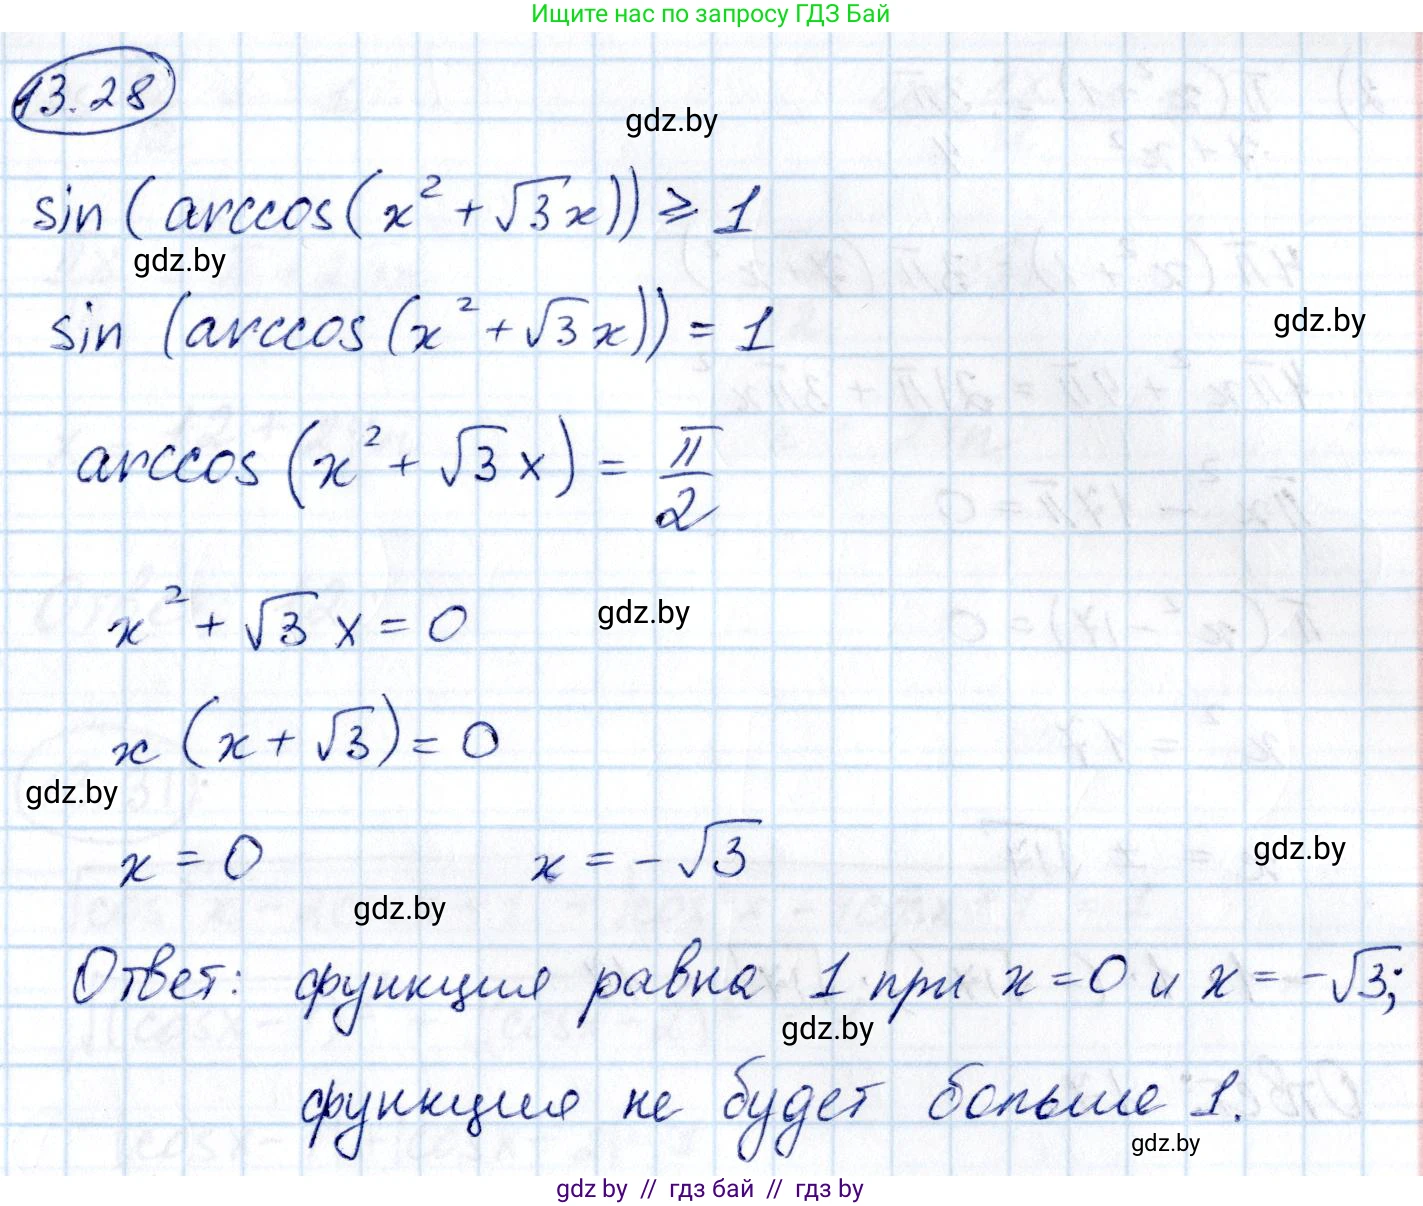 Ищите нас по запросу ГДЗ Бай
13.28
gdz.by
sin(arccos(x² + √3x)) ⩾ 1
gdz.by
sin (arccos(x² + √3x)) = 1
gdz.by
arccos(x² + √3x) = π/2
x² + √3x = 0
gdz.by
x(x + √3) = 0
gdz.by
x = 0 x = -√3
gdz.by
gdz.by
Ответ: функция равна 1 при x = 0 и x = -√3;
gdz.by
функция не будет больше 1.
gdz.by
gdz by // гдз бай // гдз by